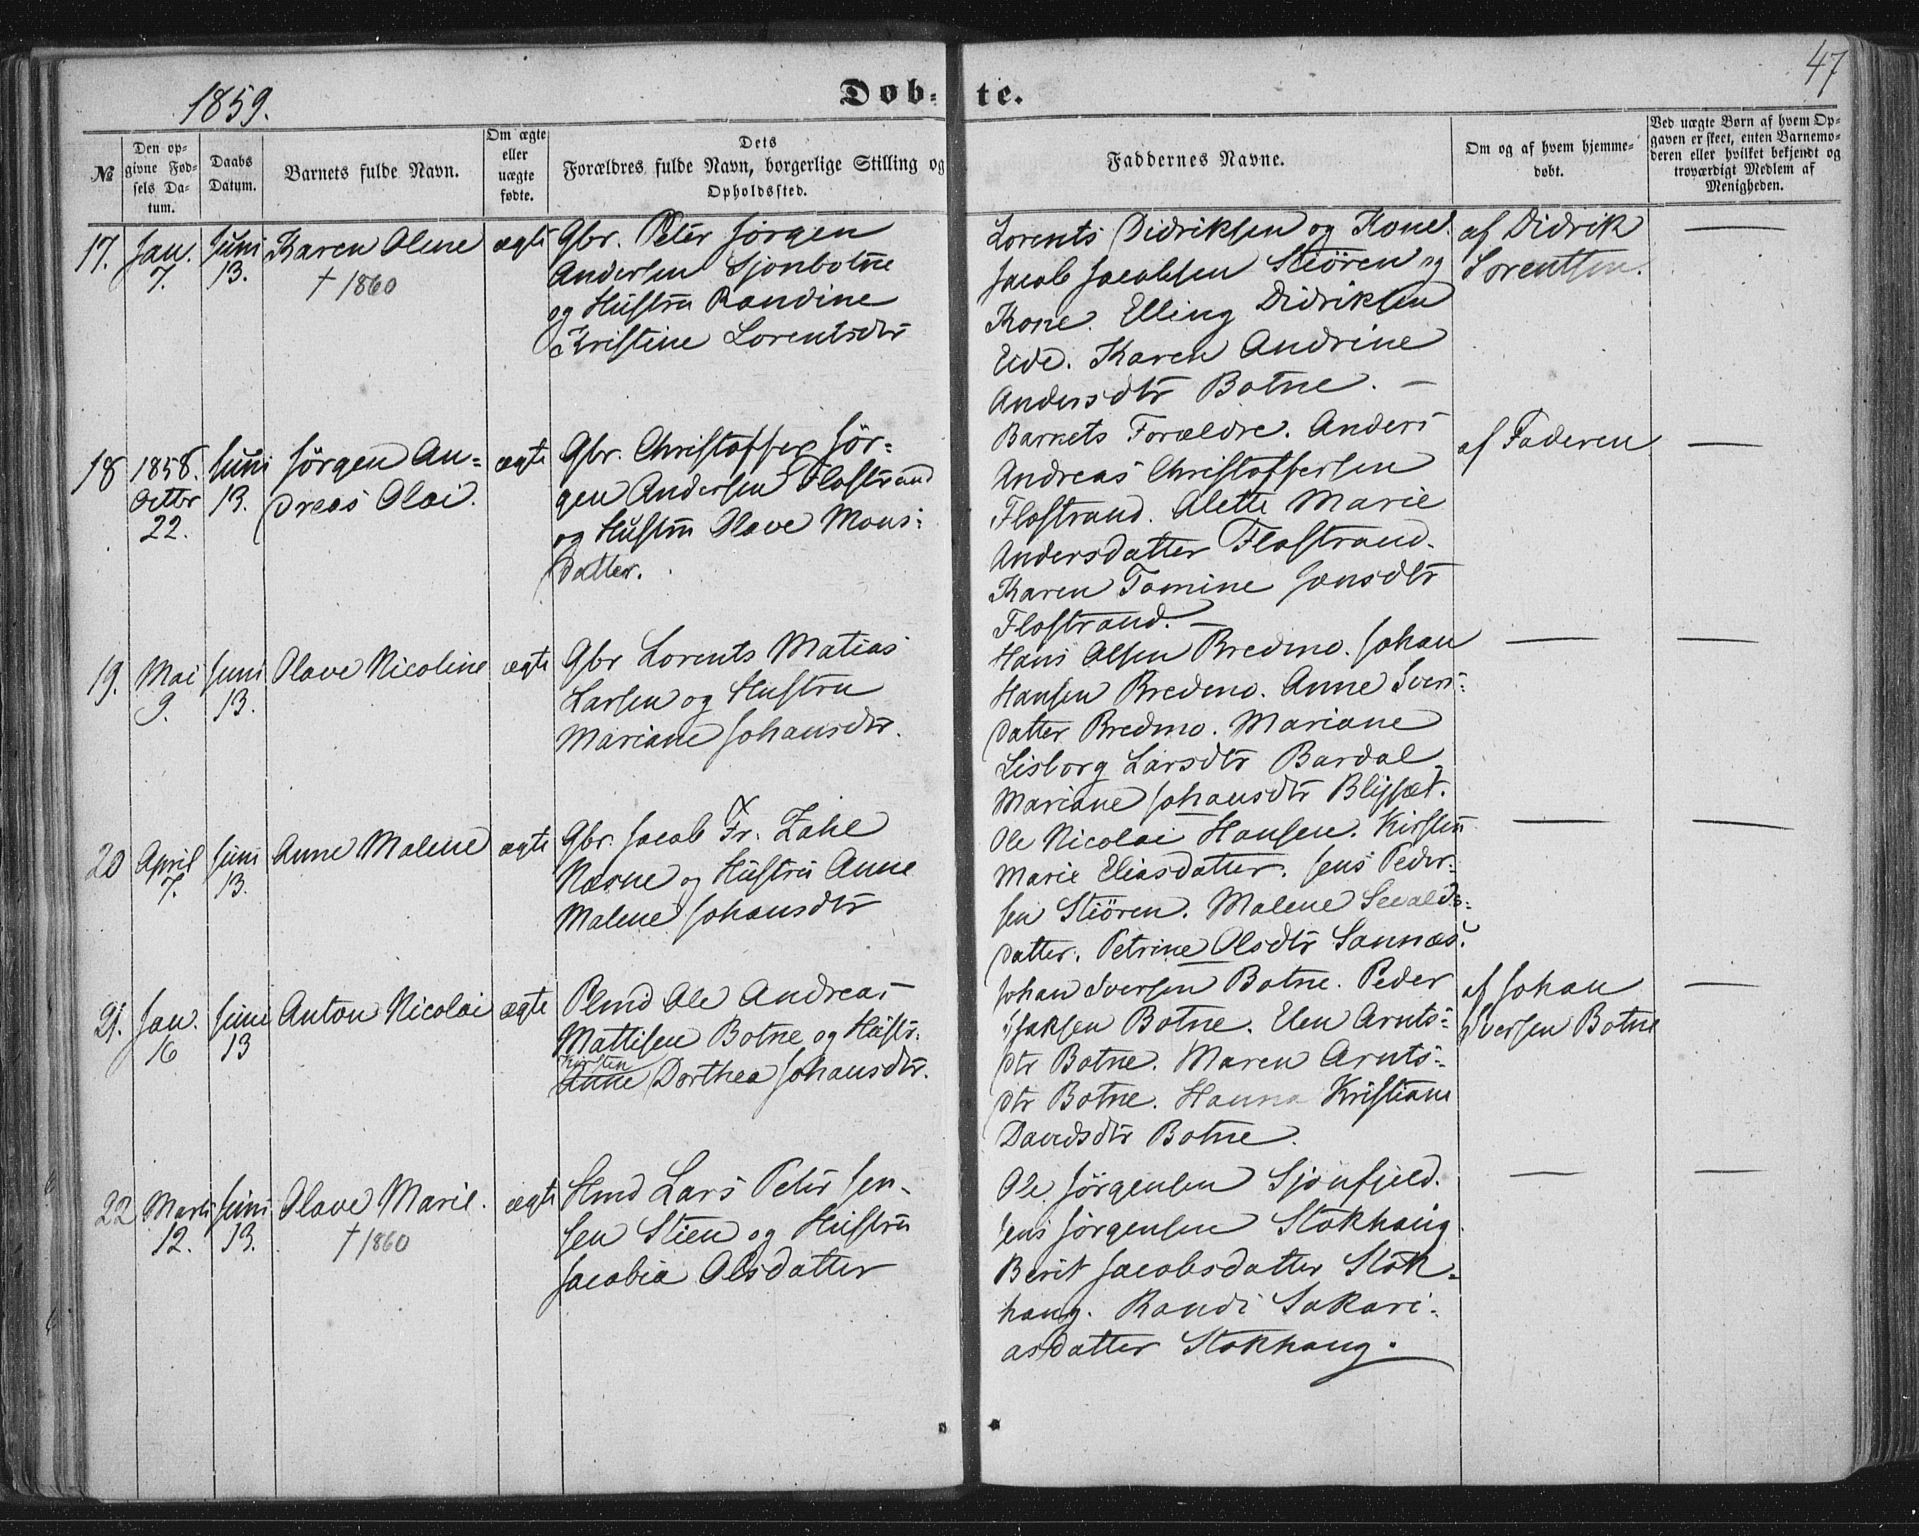 47
1859.
Døb- te.
№
Den op-
givne Fød-
sels Da-
tum.
Daabs
Datum.
Barnets fulde Navn.
Om ægte
eller
uægte
fødte.
Dets
Forældres fulde Navn, borgerlige Stilling og
Opholdssted.
Faddernes Navne.
Om og af hvem hjemme-
døbt.
Ved uægte Børn af hvem Op-
gaven er skeet, enten Barnemo-
deren eller hvilket bekjendt og
troværdigt Medlem af
Menigheden.
17. Jan. 7. Juni 13. Karen Olene ægte
† 1860
Gbr. Peter Jørgen
Andersen Sjonbotne
og Hustru Randine
Kristine Lorentsdtr
Lorents Didriksen og Kone.
Jacob Jacobsen Stiören og
Kone. Elling Didriksen
Eide. Karen Andrine
Andersdtr Botne. —
af Didrik
Lorentsen.
—
18 1858. Octbr 22. Juni 13. Jørgen An-
dreas Olai. ægte
Gbr. Christoffer Jør-
gen Andersen Flostrand
og Hustru Olave Mons-
datter.
Barnets Forældre. Anders
Andreas Christoffersen
Flostrand. Alette Marie
Andersdatter Flostrand.
Karen Tomine Jonsdtr
Flostrand. —
af Faderen
—
19. Mai 9. Juni 13. Olave Nicoline ægte
Gbr Lorents Matias
Larsen og Hustru
Mariane Johansdtr.
Hans Olsen Bredmo. Johan
Hansen Bredmo. Anne Ivers-
datter Bredmo. Mariane
Lisborg Larsdtr Bardal
Mariane Johansdtr
—
—
20 April 7. Juni 13. Anne Malene ægte
Gbr. Jacob Fr. Zahl
Næsne og Hustru Anne
Malene Johansdtr
Ole Nicolai Hansen. Kirsten
Marie Eliasdatter. Jens Peder-
sen Stiören. Malene Sevalds-
datter. Petrine Olsdtr Sannæs.
—
—
21. Jan. 16 Juni 13 Anton Nicolai ægte
Plmd Ole Andreas
Mattisen Botne og Hustr.
Kirsten
Anne Dorthea Johansdtr.
Johan Iversen Botne. Peder
Isaksen Botne. Elen Arnts-
dtr Botne. Maren Arnts-
dtr Botne. Hanna Kristiane
Davidsdtr Botne.
af Johan
Iversen Botne
—
22 Marts 12. Juni 13. Olave Marie. ægte
† 1860
Hmd Lars Peter Jen-
sen Stien og Hustru
Jacobia Olsdatter
Ole Jørgensen Sjonfjeld.
Jens Jørgensen Stokhaug
Berit Jacobsdatter Stok-
haug. Randi Sakari-
asdatter Stokhaug.
—
—